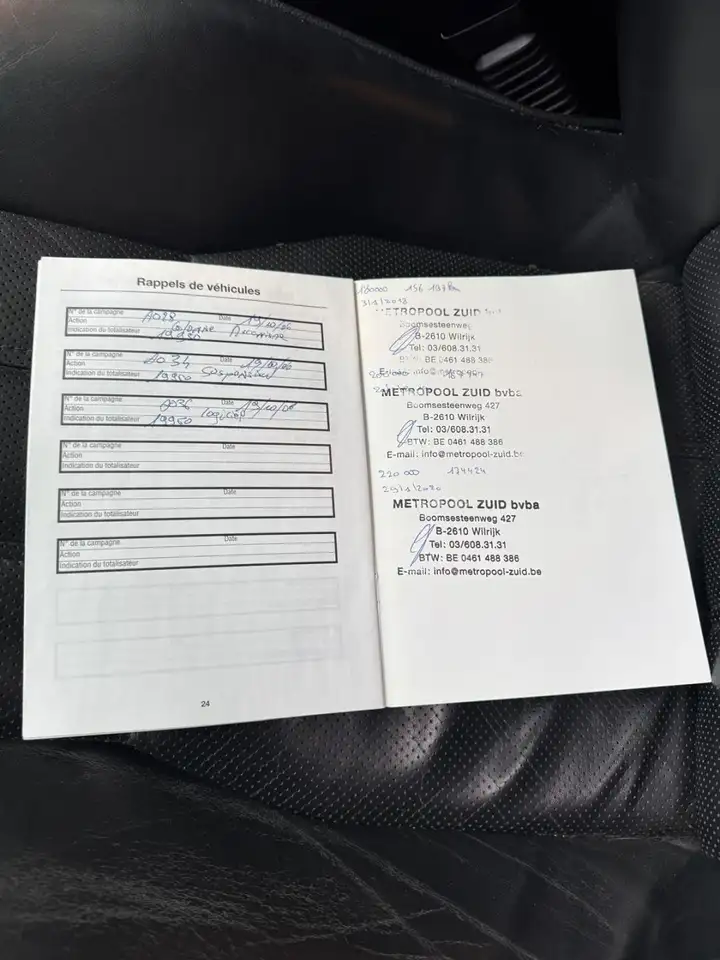 Rappels de véhicules
N° de la campagne A028 Date 19/10/06
Action
Indication du totalisateur 19950
N° de la campagne A034 Date 19/10/06
Action
Indication du totalisateur 19950
N° de la campagne A036 Date 19/10/06
Action logiciel
Indication du totalisateur 19950
N° de la campagne Date
Action
Indication du totalisateur
N° de la campagne Date
Action
Indication du totalisateur
N° de la campagne Date
Action
Indication du totalisateur
24
180000 156 197 km
METROPOOL ZUID
Boomsesteenweg
B-2610 Wilrijk
Tel: 03/608.31.31
BE 0461 488 386
METROPOOL ZUID bvba
Boomsesteenweg 427
B-2610 Wilrijk
Tel: 03/608.31.31
BTW: BE 0461 488 386
E-mail: info@metropool-zuid.be
220 000 174424
29/1/2020
METROPOOL ZUID bvba
Boomsesteenweg 427
B-2610 Wilrijk
Tel: 03/608.31.31
BTW: BE 0461 488 386
E-mail: info@metropool-zuid.be